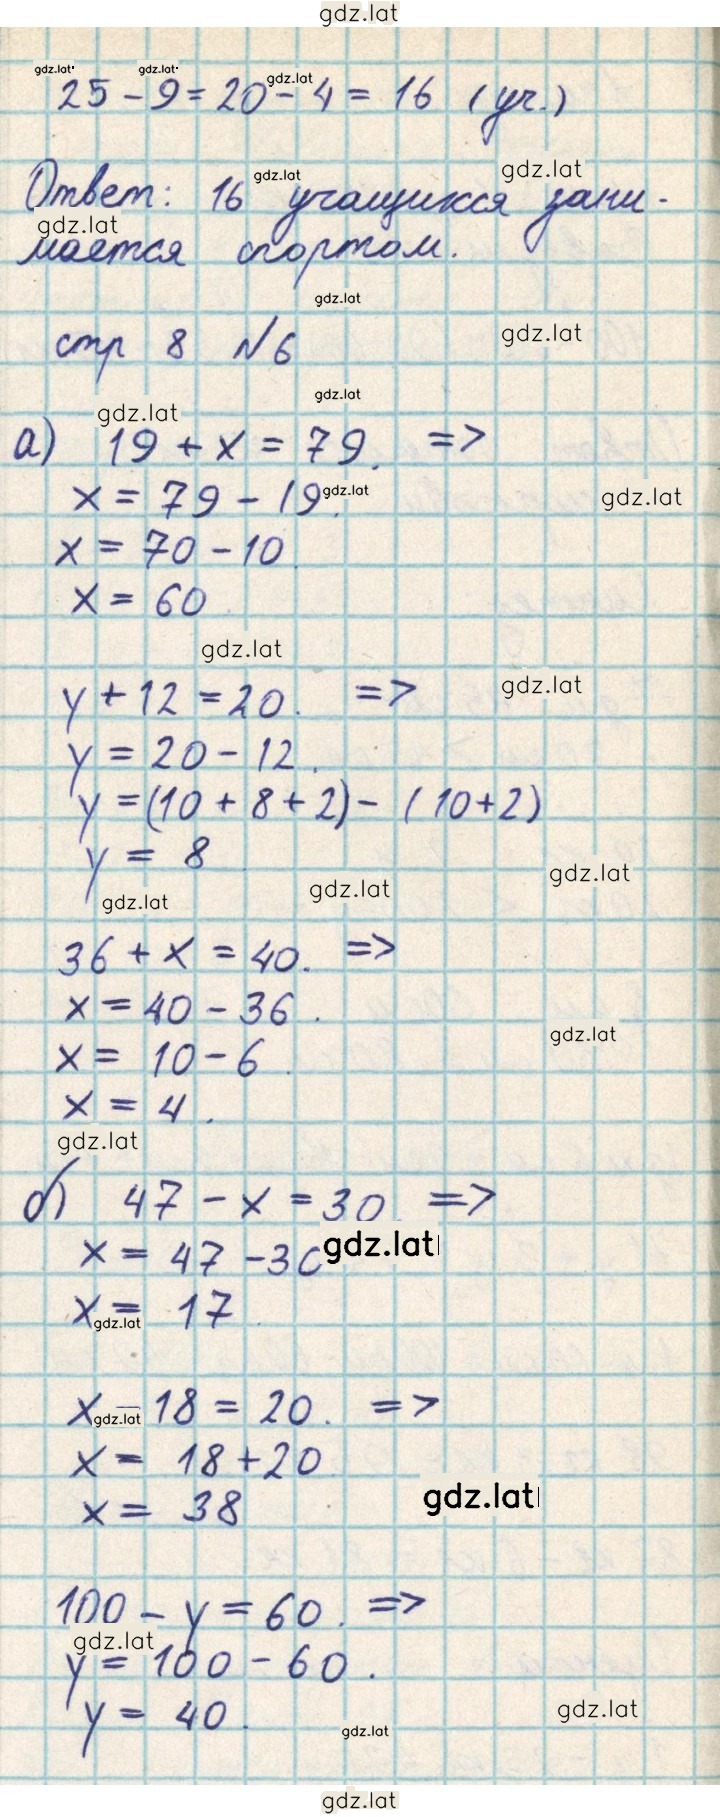 gdz.lat
gdz.lat gdz.lat gdz.lat
25 - 9 = 20 - 4 = 16 (уч.)
gdz.lat gdz.lat
Ответ: 16 учащихся зани-
gdz.lat
мается спортом.
gdz.lat
стр 8 №6 gdz.lat
gdz.lat gdz.lat
а) 19 + x = 79. =>
x = 79 - 19. gdz.lat gdz.lat
x = 70 - 10
x = 60
gdz.lat
y + 12 = 20. => gdz.lat
y = 20 - 12.
y = (10 + 8 + 2) - (10 + 2)
y = 8
gdz.lat gdz.lat gdz.lat
36 + x = 40. =>
x = 40 - 36.
gdz.lat
x = 10 - 6.
x = 4.
gdz.lat
б) 47 - x = 30. =>
x = 47 - 30 gdz.lat
x = 17
gdz.lat
x - 18 = 20. =>
gdz.lat
x = 18 + 20
x = 38 gdz.lat
100 - y = 60. =>
gdz.lat
y = 100 - 60.
y = 40. gdz.lat
gdz.lat
gdz.lat